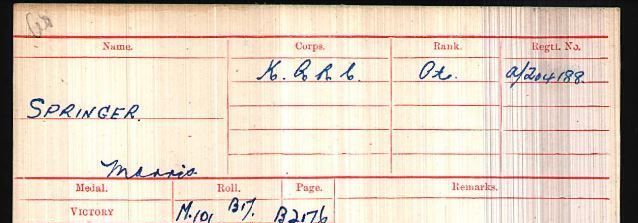 Name. Corps. Rank. Regtl. No.
K. R. R. C. Pte. A/204188.
SPRINGER.
Morris
Medal. Roll. Page. Remarks.
VICTORY M.101 B17. B2176